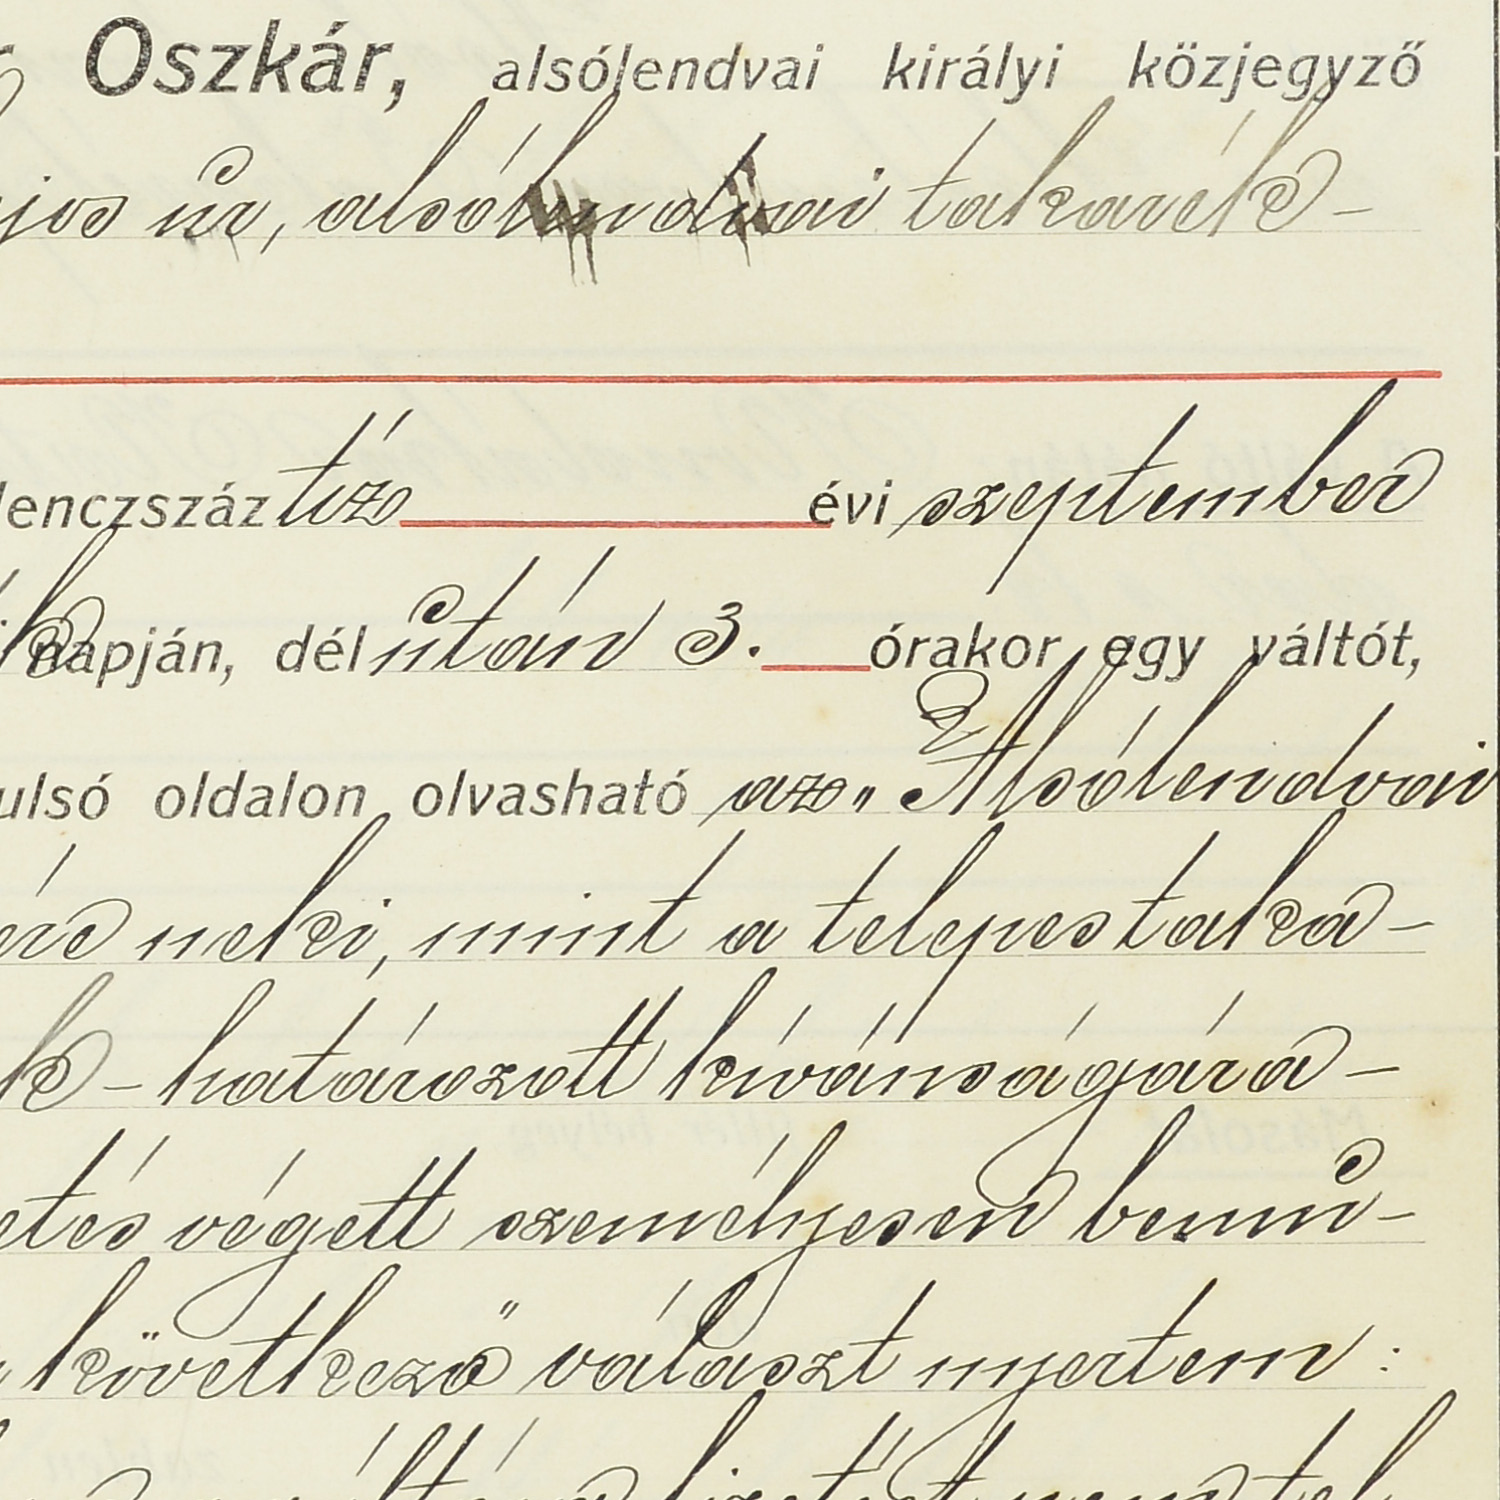 Oszkár, alsólendvai királyi közjegyző
jos úr, alsólendvai takarék-
lenczszáz tiz évi szeptember
napján, dél után 3. órakor egy váltót,
ulsó oldalon olvasható az „Alsólendvai
neki, mint a telepes taka-
k- határozott kívánságára-
etés végett személyesen bemu-
következő választ nyertem: